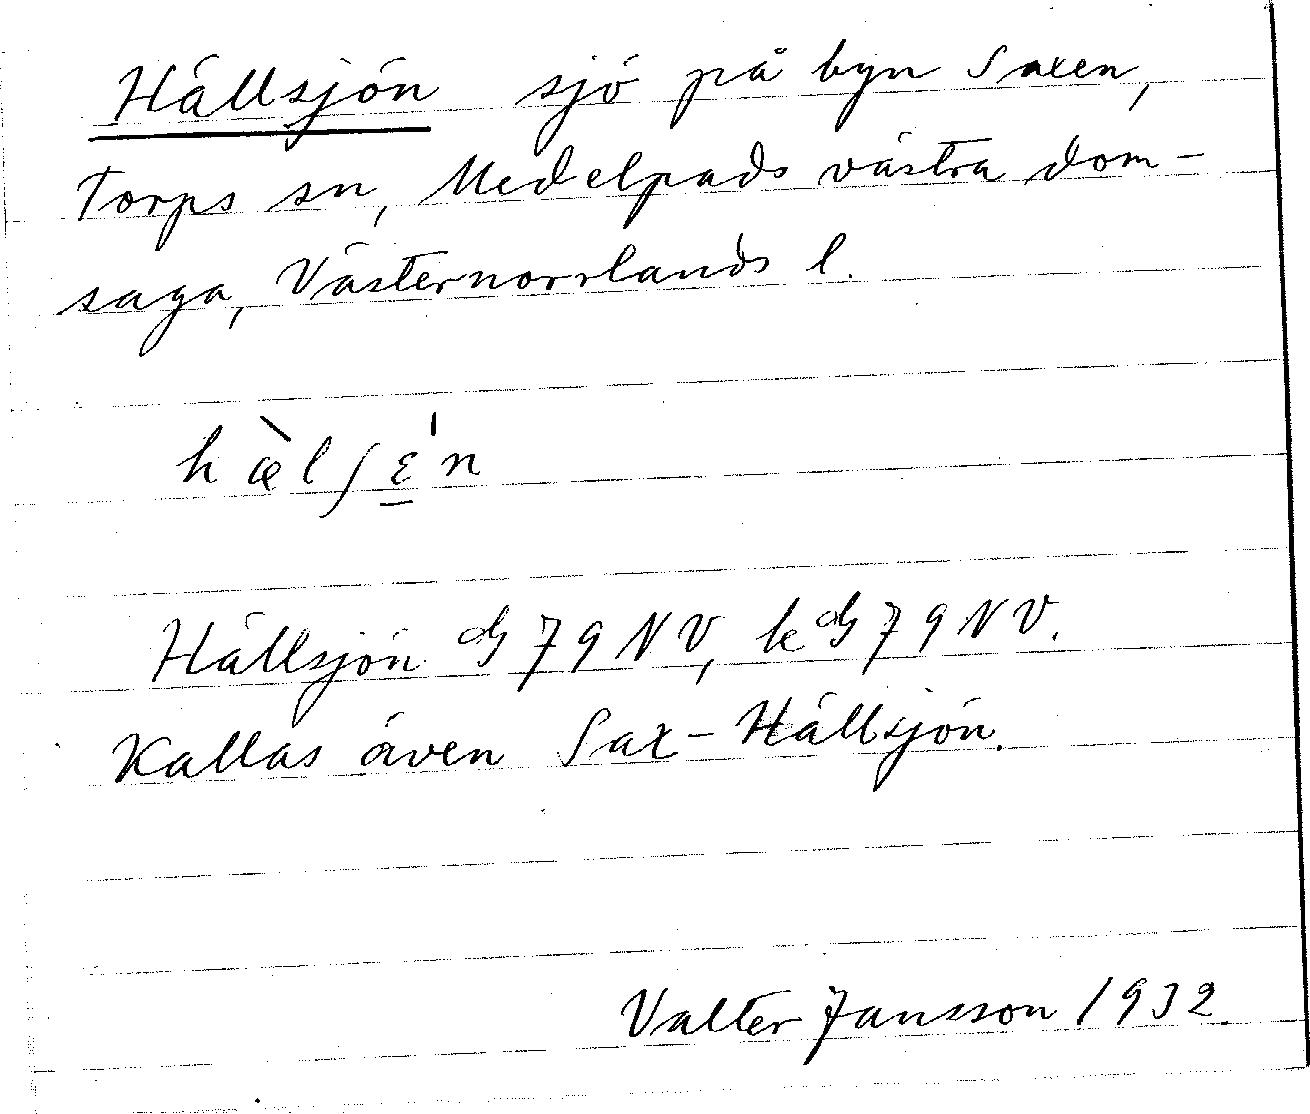 Hällsjön sjö på byn Saxen,
Torps sn, Medelpads västra dom-
saga, Västernorrlands l.
hæ̀lʃɛ̠́n
Hällsjön G 79 NV, k G 79 NV.
Kallas även Sax-Hällsjön.
Valter Jansson 1932.